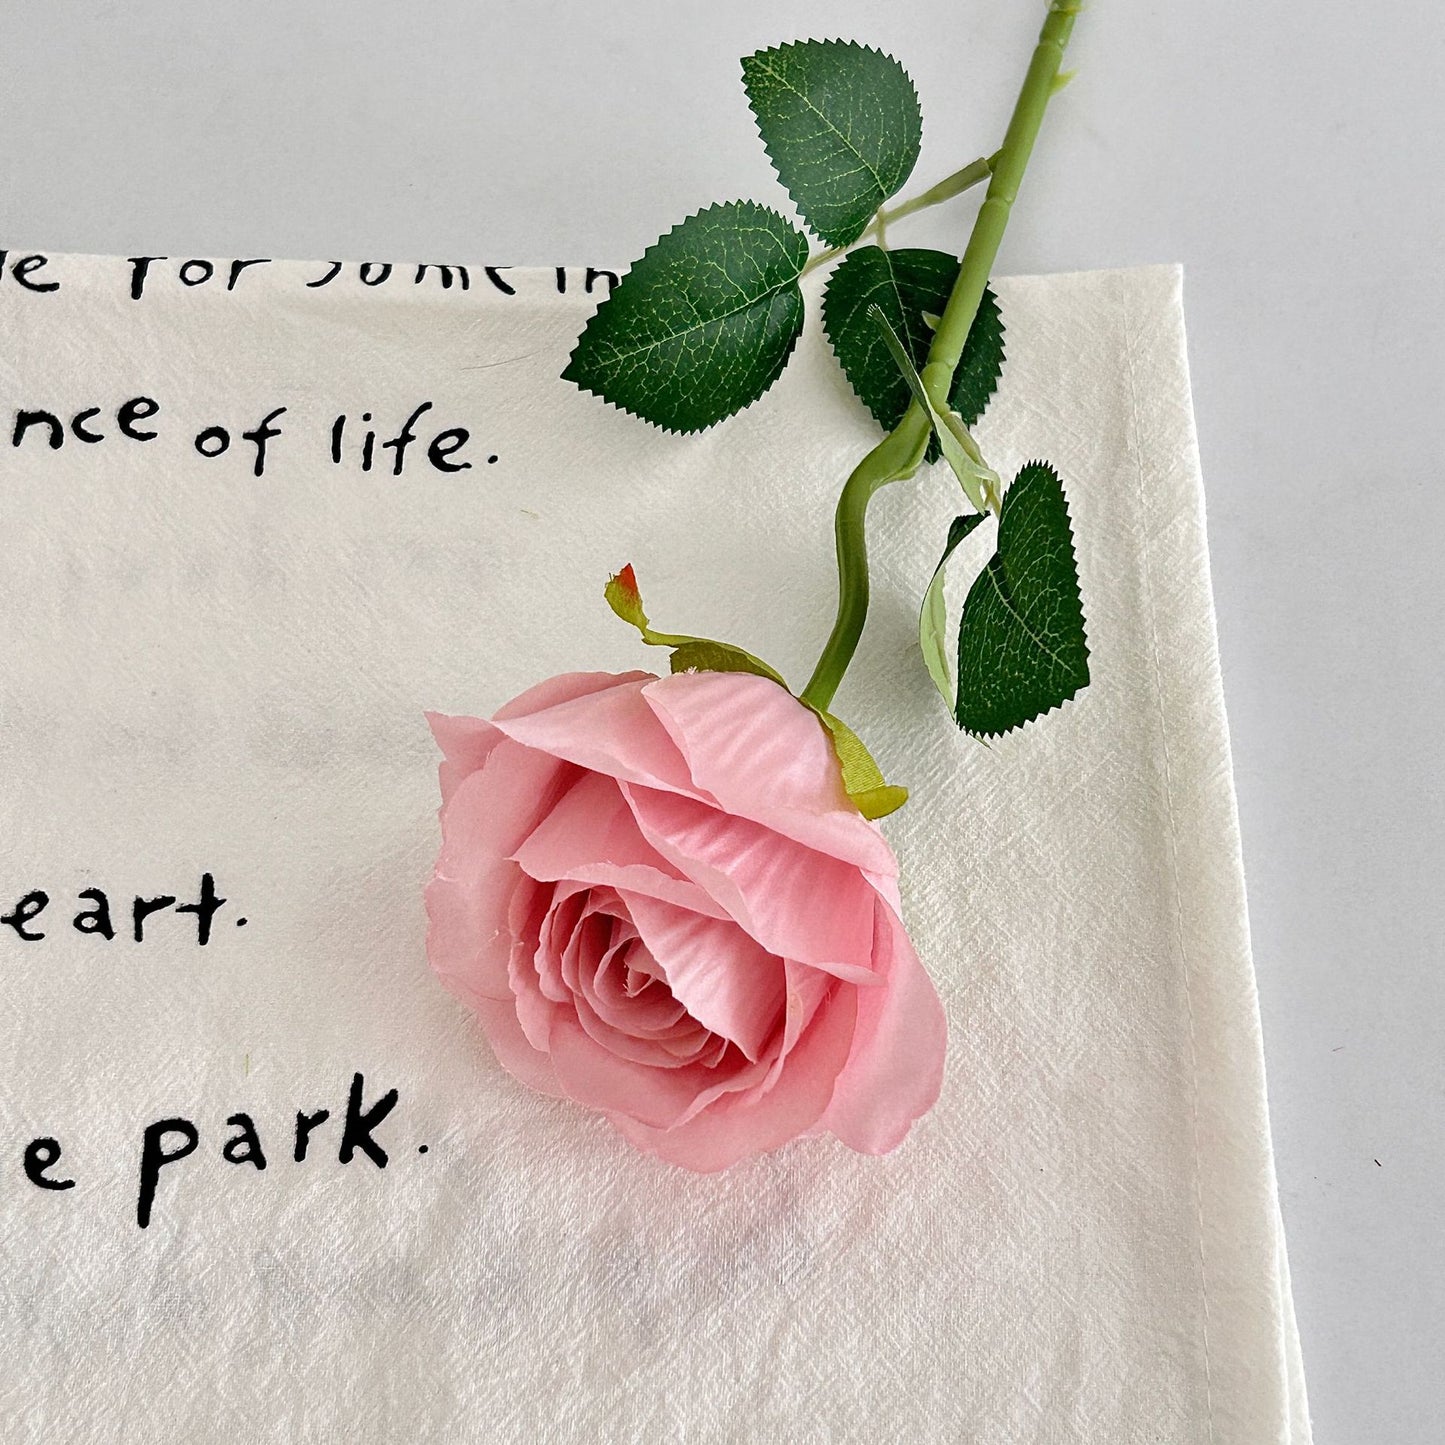 for some
nce of life.
eart.
e park.